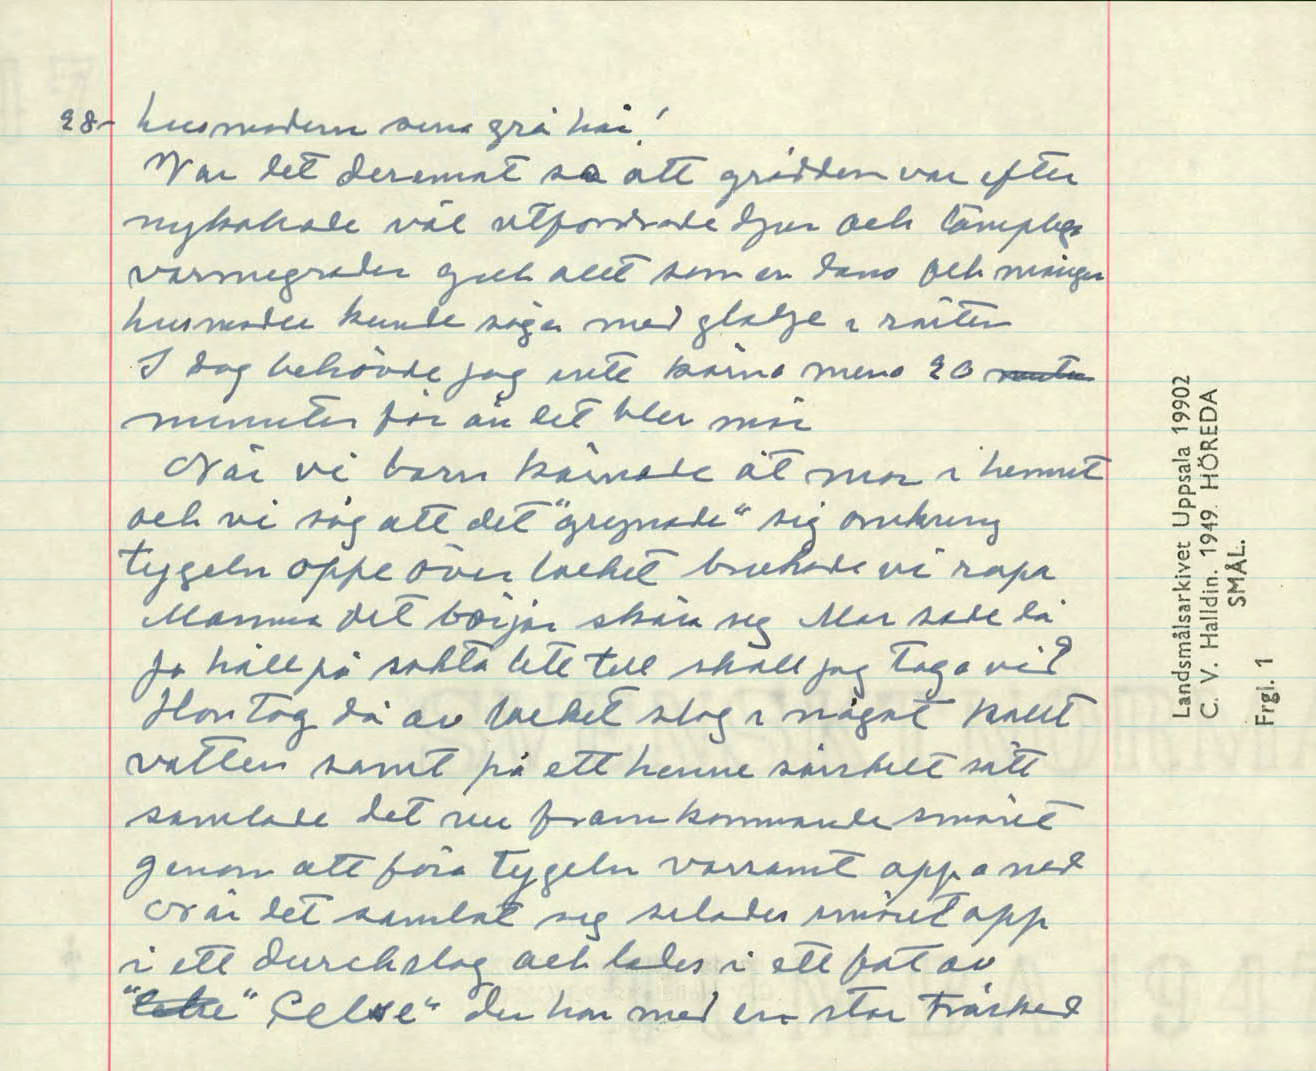 28- husmodern sina grå hår!
Var det deremot så att grädden var efter
nykalvade väl utfordrade djur och lämpliga
värmegrader gick allt som en dans och mången
husmoder kunde säga med glädje i rösten
I dag behövde jag inte kärna mera 20
minuter för än det blev smör
När vi barn kärnade åt mor i hemmet
och vi såg att det "grynade" sig omkring
tygeln oppe över locket brukade vi ropa
Mamma det börjar skära sig Mor sade då
ja håll på sakta lite till skall jag taga vid
Hon tog då av locket slog i något kallt
vatten samt på ett henne särskilt sätt
samlade det nu framkommande smöret
genom att föra tygeln varsamt opp o ned
När det samlat sig silades smöret opp
i ett durchslag och lades i ett fat av
der hon med en stor träsked
Landsmålsarkivet Uppsala 19902
C. V. Halldin. 1949. HÖREDA
SMÅL.
Frgl. 1